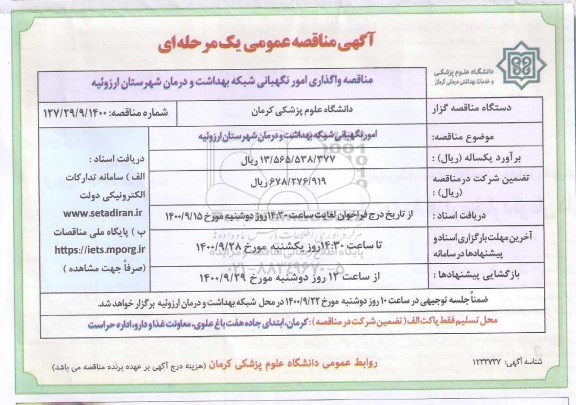 آگهی مناقصه عمومی یک مرحله‌ای
دانشگاه علوم پزشکی
و خدمات بهداشتی درمانی کرمان
مناقصه واگذاری امور نگهبانی شبکه بهداشت و درمان شهرستان ارزوئیه
دستگاه مناقصه گزار
دانشگاه علوم پزشکی کرمان
شماره مناقصه: ۱۲۷/۲۹/۹/۱۴۰۰
موضوع مناقصه:
امور نگهبانی شبکه بهداشت و درمان شهرستان ارزوئیه
برآورد یکساله (ریال):
۱۳/۵۶۵/۵۳۸/۳۷۷ ریال
تضمین شرکت در مناقصه
(ریال):
۶۷۸/۲۷۶/۹۱۹ ریال
دریافت اسناد:
از تاریخ درج فراخوان لغایت ساعت ۱۴:۳۰ روز دوشنبه مورخ ۱۴۰۰/۹/۱۵
آخرین مهلت بارگزاری اسناد و
پیشنهادها در سامانه
تا ساعت ۱۴:۳۰ روز یکشنبه مورخ ۱۴۰۰/۹/۲۸
بازگشایی پیشنهادها:
از ساعت ۱۲ روز دوشنبه مورخ ۱۴۰۰/۹/۲۹
دریافت اسناد:
الف) سامانه تدارکات
الکترونیکی دولت
www.setadiran.ir
ب) پایگاه ملی مناقصات
https://iets.mporg.ir
(صرفاً جهت مشاهده)
ضمناً جلسه توجیهی در ساعت ۱۰ روز دوشنبه مورخ ۱۴۰۰/۹/۲۲ در محل شبکه بهداشت و درمان ارزوئیه برگزار خواهد شد.
محل تسلیم فقط پاکت الف (تضمین شرکت در مناقصه): کرمان، ابتدای جاده هفت باغ علوی، معاونت غذا و دارو، اداره حراست
شناسه آگهی: ۱۲۳۳۷۳۷
روابط عمومی دانشگاه علوم پزشکی کرمان (هزینه درج آگهی بر عهده برنده مناقصه می باشد)